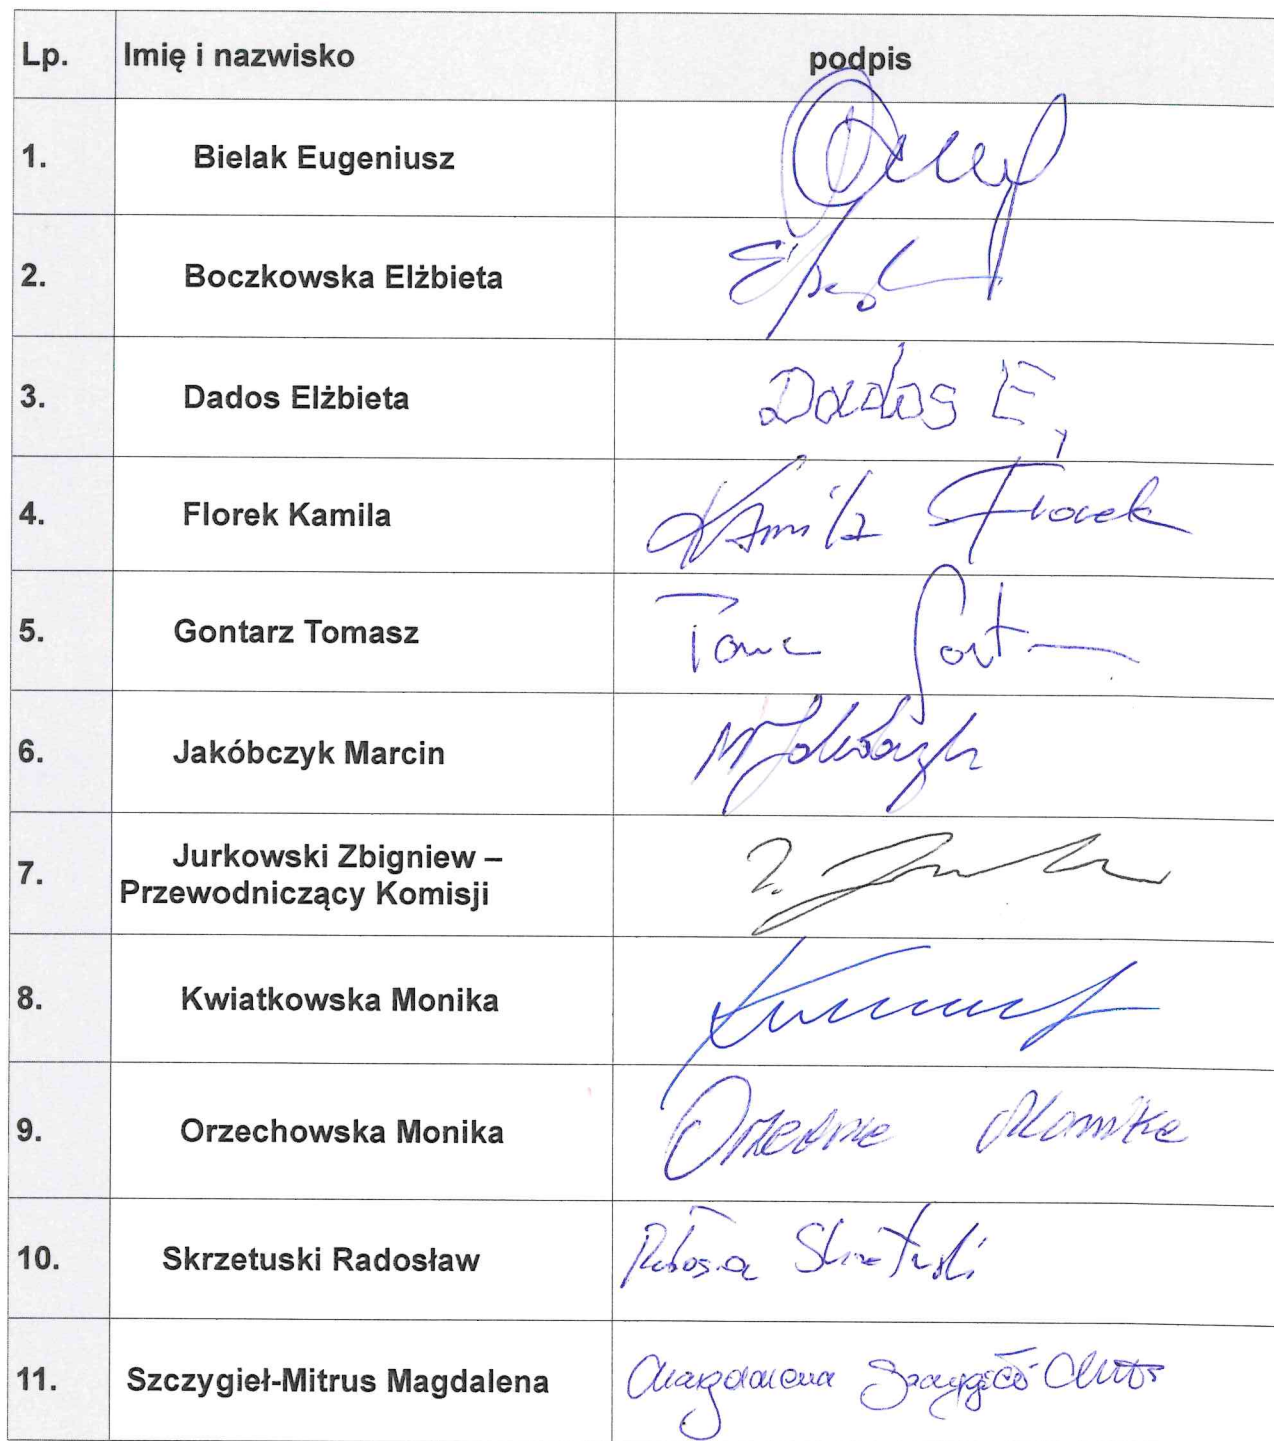 Lp. Imię i nazwisko podpis
1. Bielak Eugeniusz
2. Boczkowska Elżbieta
3. Dados Elżbieta Dados E,
4. Florek Kamila Kamila Florek
5. Gontarz Tomasz
6. Jakóbczyk Marcin M Jakóbczyk
7. Jurkowski Zbigniew –
Przewodniczący Komisji
8. Kwiatkowska Monika
9. Orzechowska Monika Monika
10. Skrzetuski Radosław Skrzetuski
11. Szczygieł-Mitrus Magdalena Magdalena Szczygieł-Mitrus